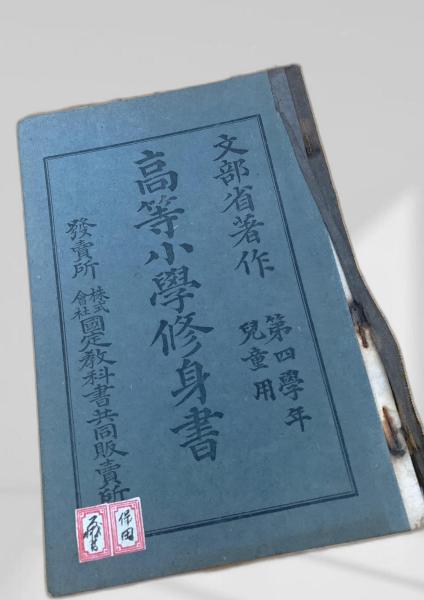 文部省著作
第四學年
兒童用
高等小學修身書
發賣所
株式
會社
國定敎科書共同販賣所
保田